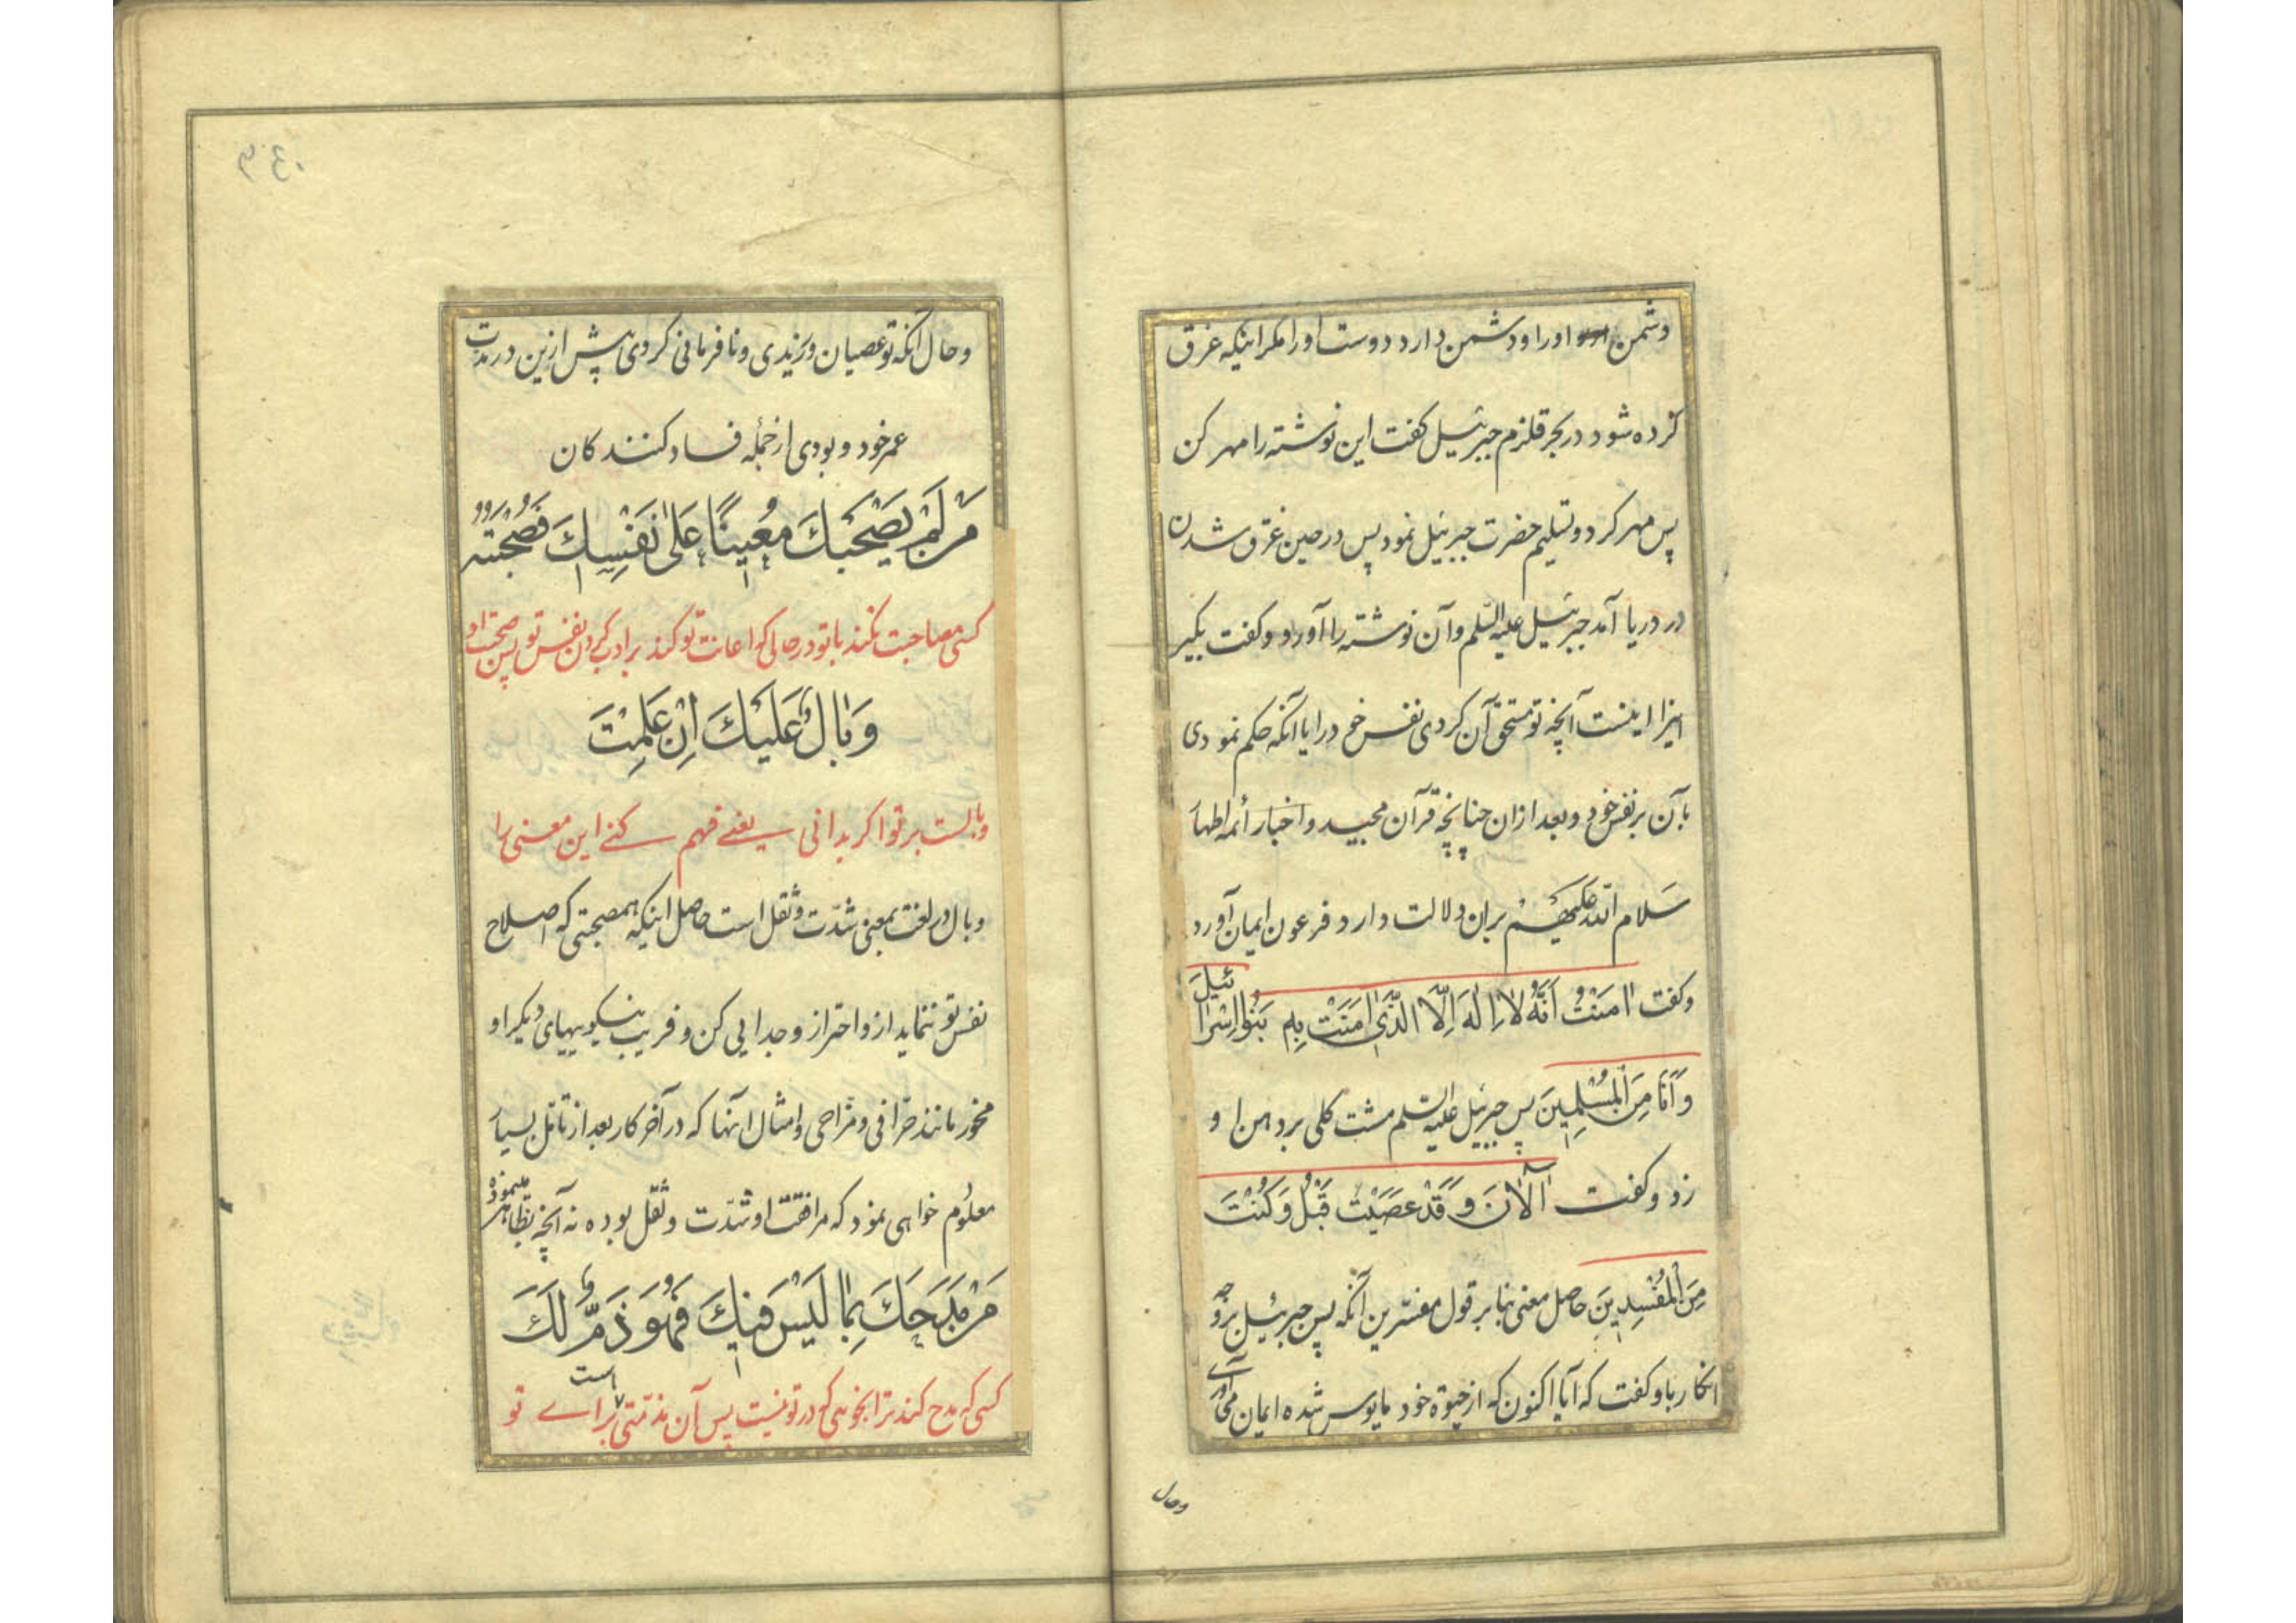 دشمن اورا و دشمن دارد دوست اورا مکر اینکه غرق
کرده شود در بحر قلزم جبرئیل کفت این نوشته را مهر کن
پس مهر کرد و تسلیم حضرت جبرئیل نمود پس در حین غرق شدن
در دریا آمد جبرئیل علیه السّلم و آن نوشته را آورد و کفت بکیر
اینست آنچه تو مستحق آن کردی نفس خود را یا آنکه حکم نمودی
بآن بر نفس خود و بعد ازان چنانچه قرآن مجید و اخبار أئمه اطهار
سَلام اللّه علیهم بران دلالت دارد فرعون ایمان آورد
و کفت اٰمَنْتُ اَنَّهُ لاٰ اِلٰهَ اِلَّا الَّذٖی اٰمَنَتْ بِهٖ بَنُوا اِسْرٰائیلَ
وَ اَنَا مِنَ الْمُسْلِمٖینَ پس جبرئیل علیه السّلم مشت کلی بر دهن او
زد و کفت آلْآنَ وَ قَدْ عَصَیْتَ قَبْلُ وَ کُنْتَ
مِنَ الْمُفْسِدٖینَ حاصل معنی بنا بر قول مفسّرین آنکه پس جبرئیل بر وجه
انکار باو کفت که آیا اکنون که از حیوة خود مایوس شده ایمان می آوری
وحال
وحال آنکه تو عصیان ورزیدی و نافرمانی کردی پیش ازین در مدت
عمر خود و بودی از جمله فساد کنندکان
مَنْ لَمْ یَصْحَبْكَ مُعٖینًا عَلیٰ نَفْسِكَ فَصُحْبَتُهُ
کسی مصاحبت نکند با تو در حالی که اعانت تو کند بر ادب کردن نفس تو پس صحبت او
وَبٰالٌ عَلَیْكَ اِنْ عَلِمْتَ
وبالست بر تو اکر بدانی یعنے فهم کنے این معنی را
وبال در لغت بمعنی شدّت و ثقل است حاصل اینکه همصحبتی که اصلاح
نفس تو ننماید ازو احتراز و جدایی کن و فریب نیکوییهای دیکر او
مخور مانند حرّافی و مزّاحی و امثال آنها که در آخر کار بعد از تامّل بسیار
معلوم خواهی نمود که مرافقت او شدّت و ثقل بوده نه آنچه بظاهر مینموده
مَنْ مَدَحَكَ بِمٰا لَیْسَ فٖیكَ فَهُوَ ذَمٌّ لَكَ
کسی که مدح کند ترا بخوبی که در تو نیست پس آن مذمّتی است براے تو